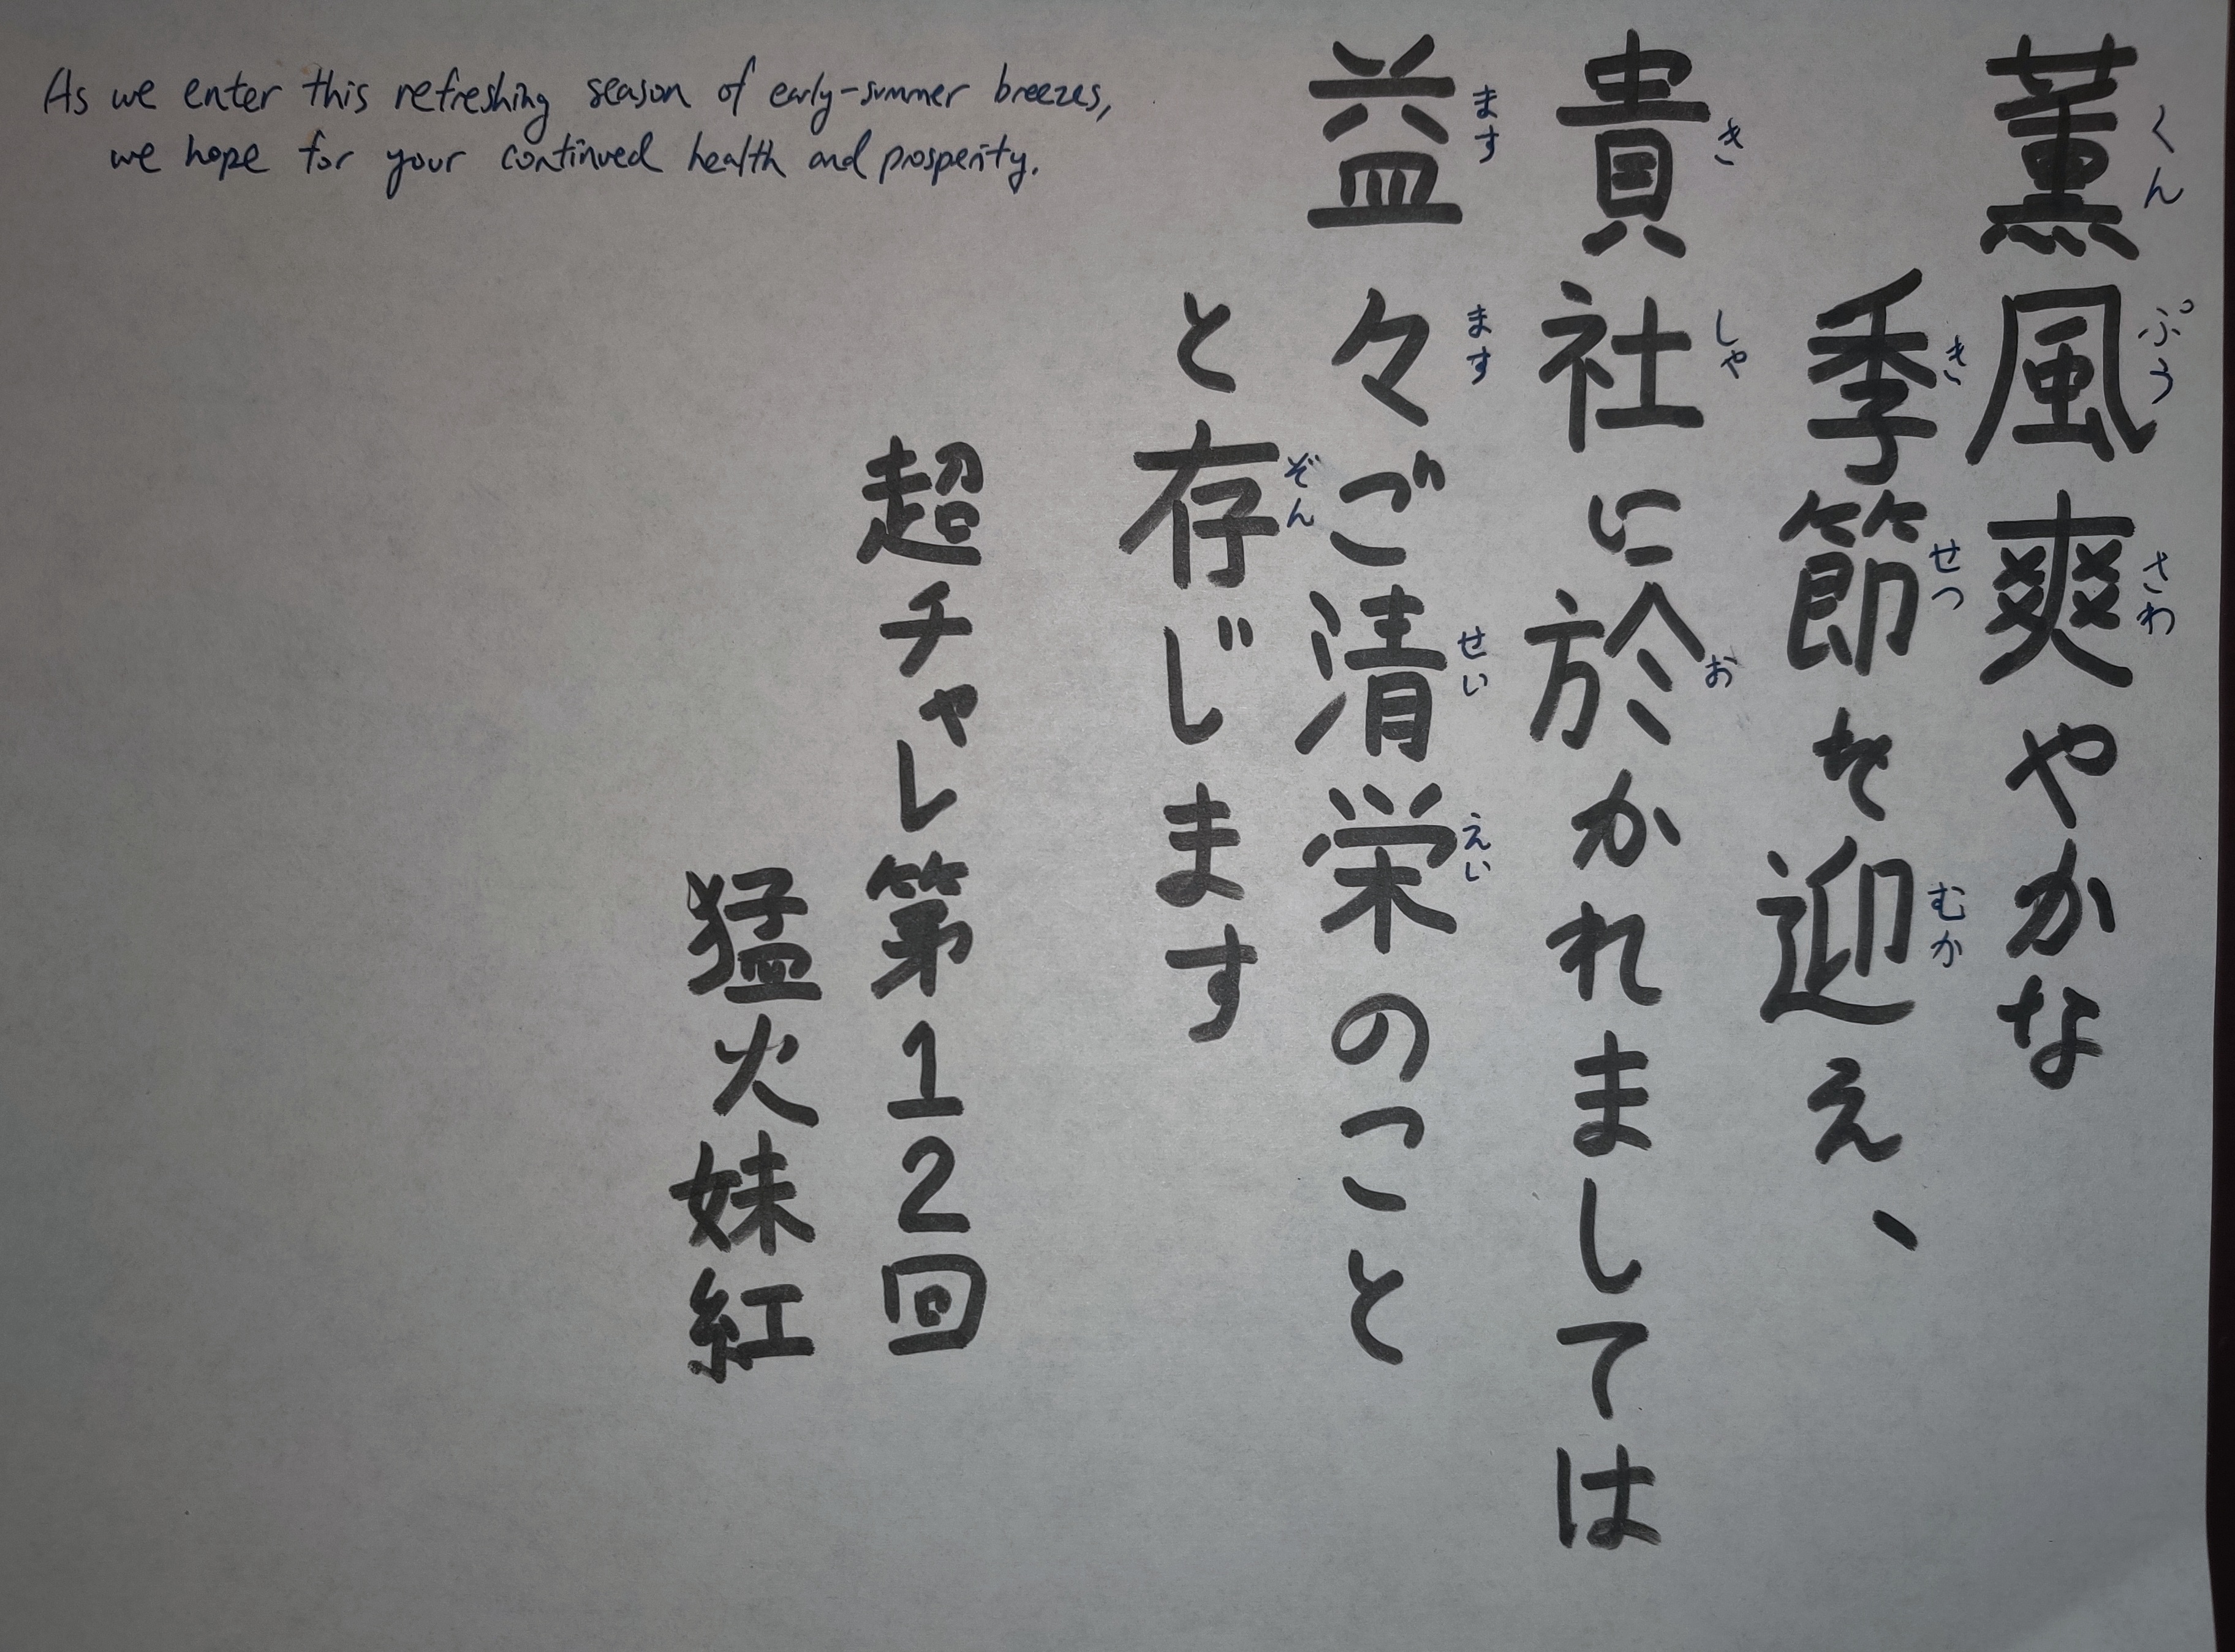 薫風爽やかな
季節を迎え、
貴社に於かれましては
益々ご清栄のこと
と存じます
超チャレ第12回
猛火妹紅
くんぷうさわ
きせつむか
きしゃお
ますますせいえい
ぞん
As we enter this refreshing season of early-summer breezes,
we hope for your continued health and prosperity.